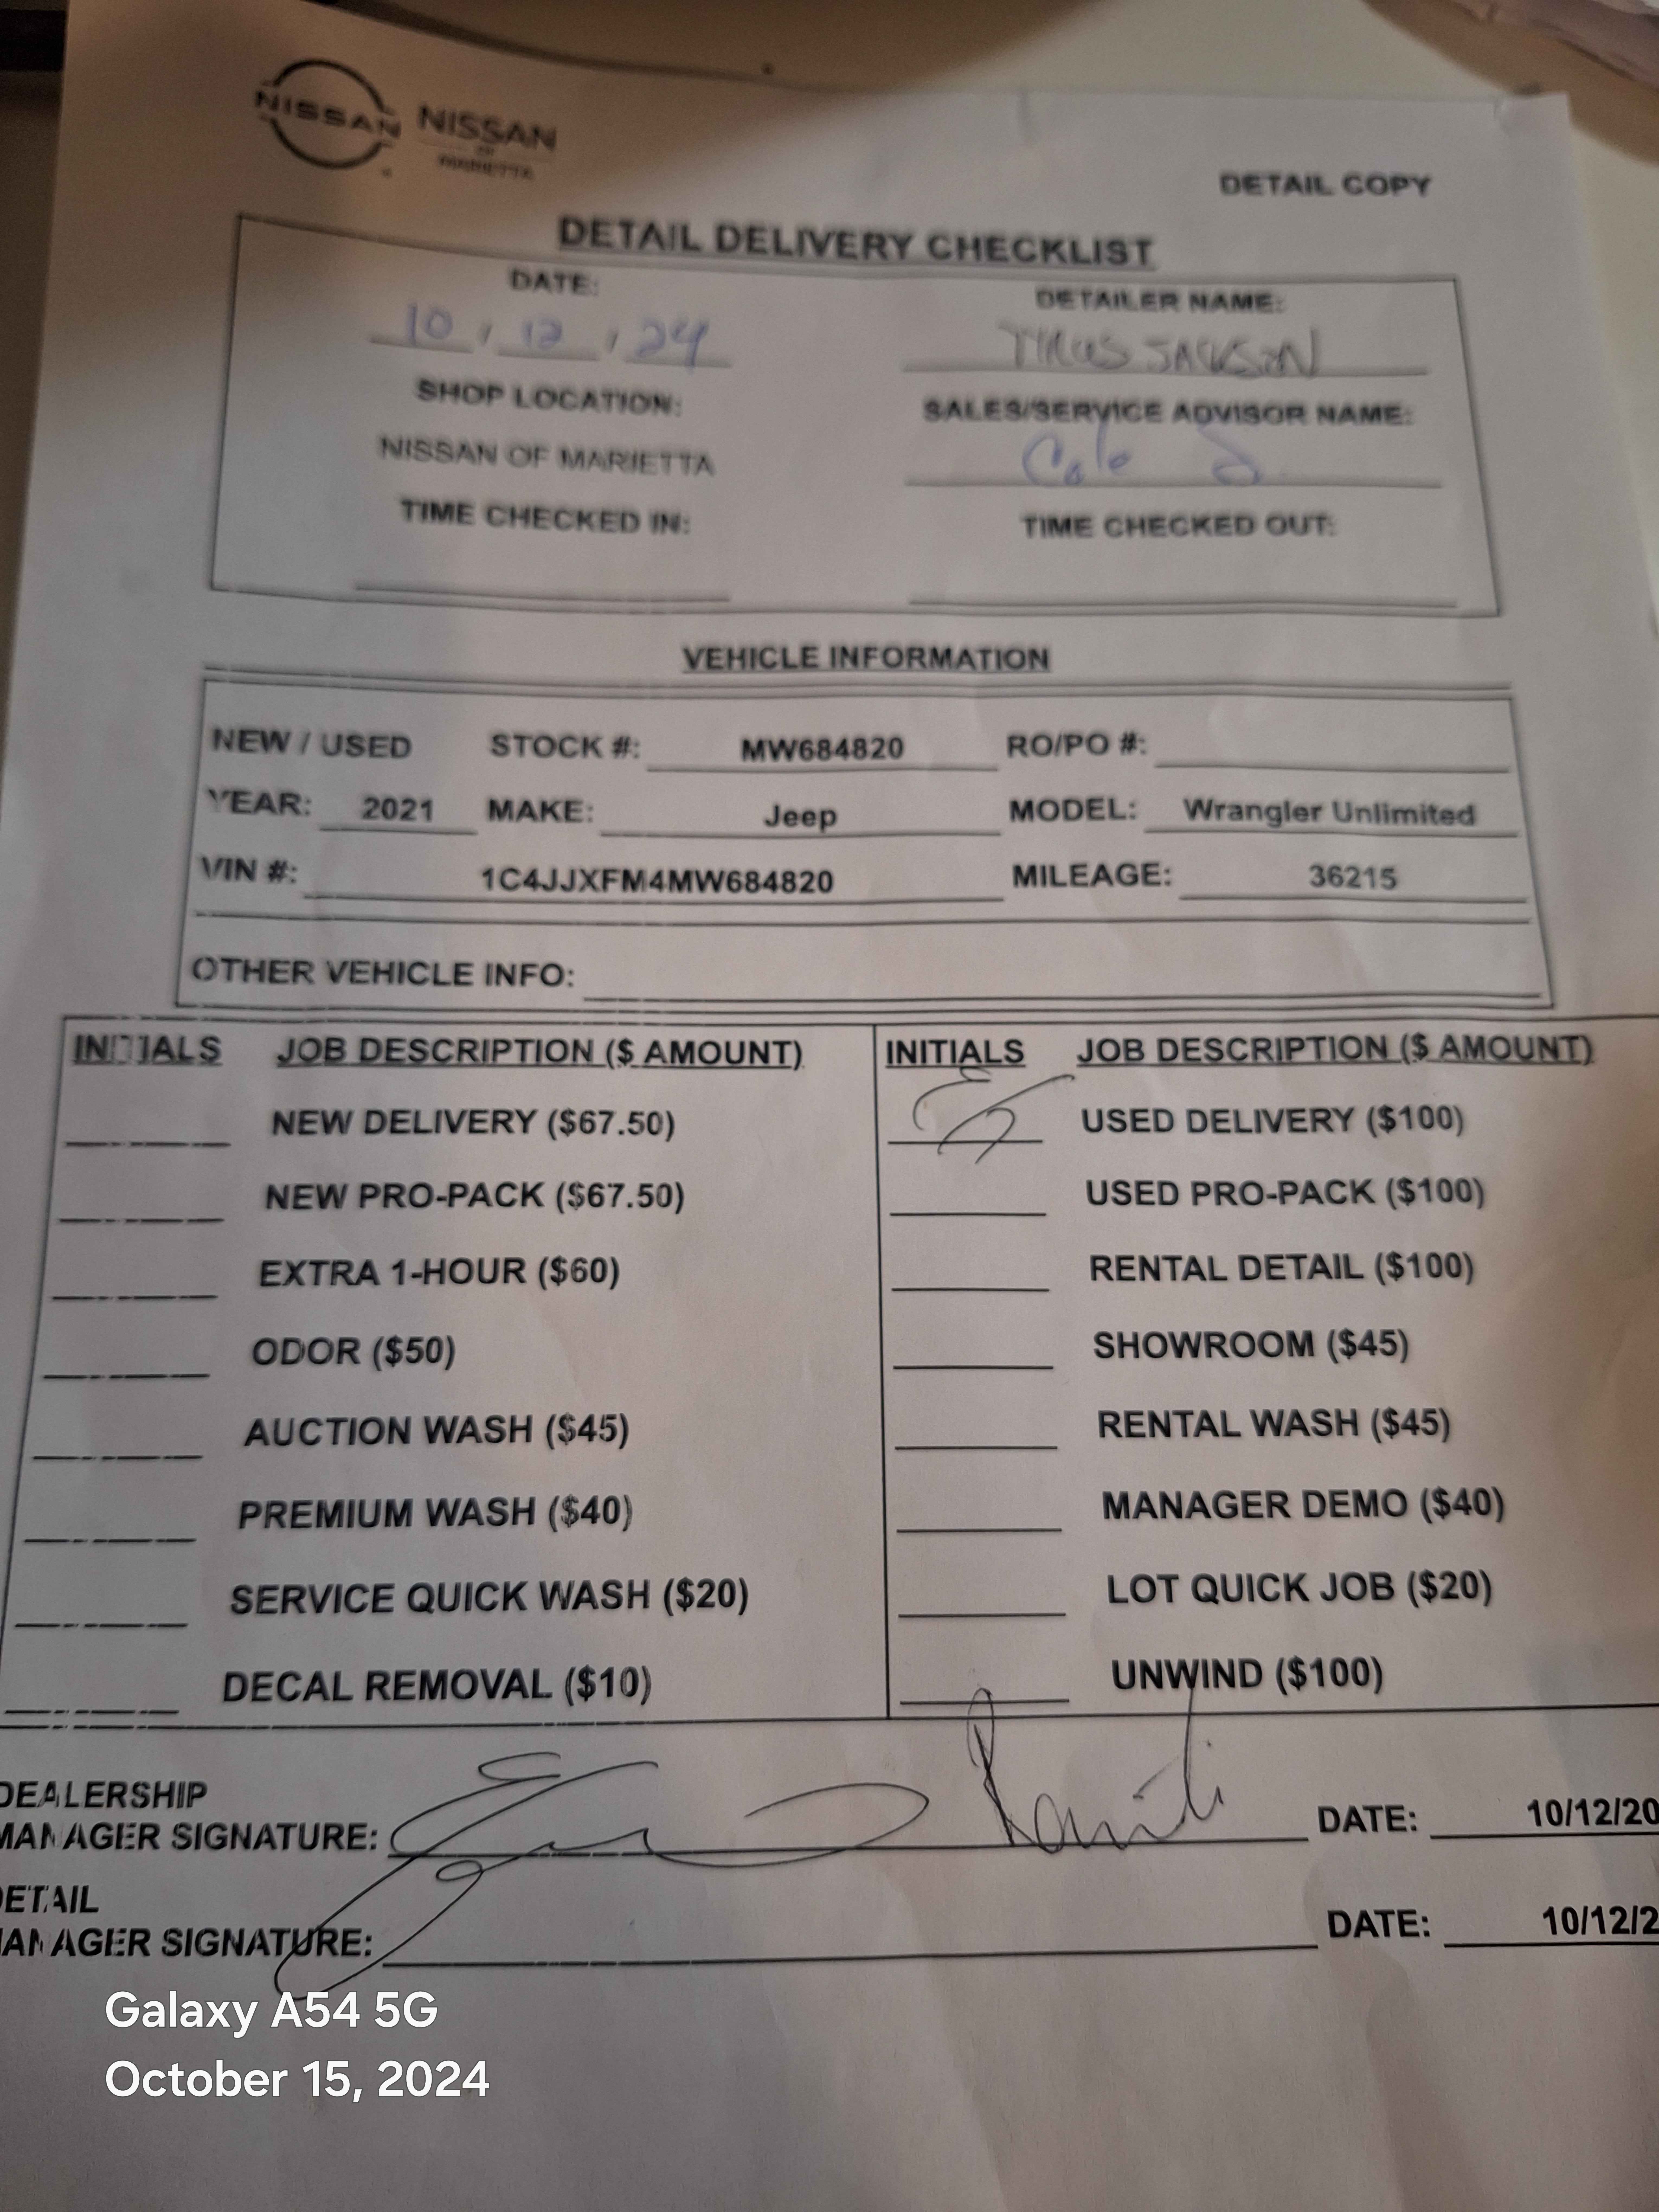 NISSAN NISSAN
OF
MARIETTA
DETAIL COPY
DETAIL DELIVERY CHECKLIST
DATE: DETAILER NAME:
10 / 12 / 24 TYRUS JACKSON
SHOP LOCATION: SALES/SERVICE ADVISOR NAME:
NISSAN OF MARIETTA Cole
TIME CHECKED IN: TIME CHECKED OUT:
VEHICLE INFORMATION
NEW / USED STOCK #: MW684820 RO/PO #:
YEAR: 2021 MAKE: Jeep MODEL: Wrangler Unlimited
VIN #: 1C4JJXFM4MW684820 MILEAGE: 36215
OTHER VEHICLE INFO:
INITIALS JOB DESCRIPTION ($ AMOUNT) INITIALS JOB DESCRIPTION ($ AMOUNT)
NEW DELIVERY ($67.50) USED DELIVERY ($100)
NEW PRO-PACK ($67.50) USED PRO-PACK ($100)
EXTRA 1-HOUR ($60) RENTAL DETAIL ($100)
ODOR ($50) SHOWROOM ($45)
AUCTION WASH ($45) RENTAL WASH ($45)
PREMIUM WASH ($40) MANAGER DEMO ($40)
SERVICE QUICK WASH ($20) LOT QUICK JOB ($20)
DECAL REMOVAL ($10) UNWIND ($100)
DEALERSHIP
MANAGER SIGNATURE: DATE: 10/12/20
ETAIL
ANAGER SIGNATURE: DATE: 10/12/2
Galaxy A54 5G
October 15, 2024